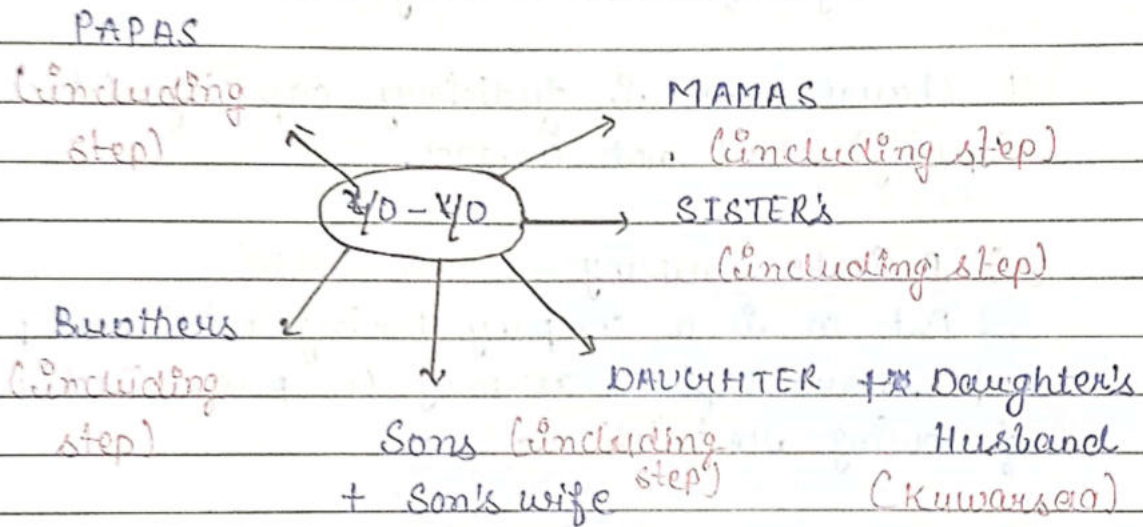 PAPAS
(including
step)
MAMAS
(including step)
SISTER's
(including step)
Brothers
(including
step)
Sons (including
step)
+ Son's wife
DAUGHTER + Daughter's
Husband
(Kuwarsaa)